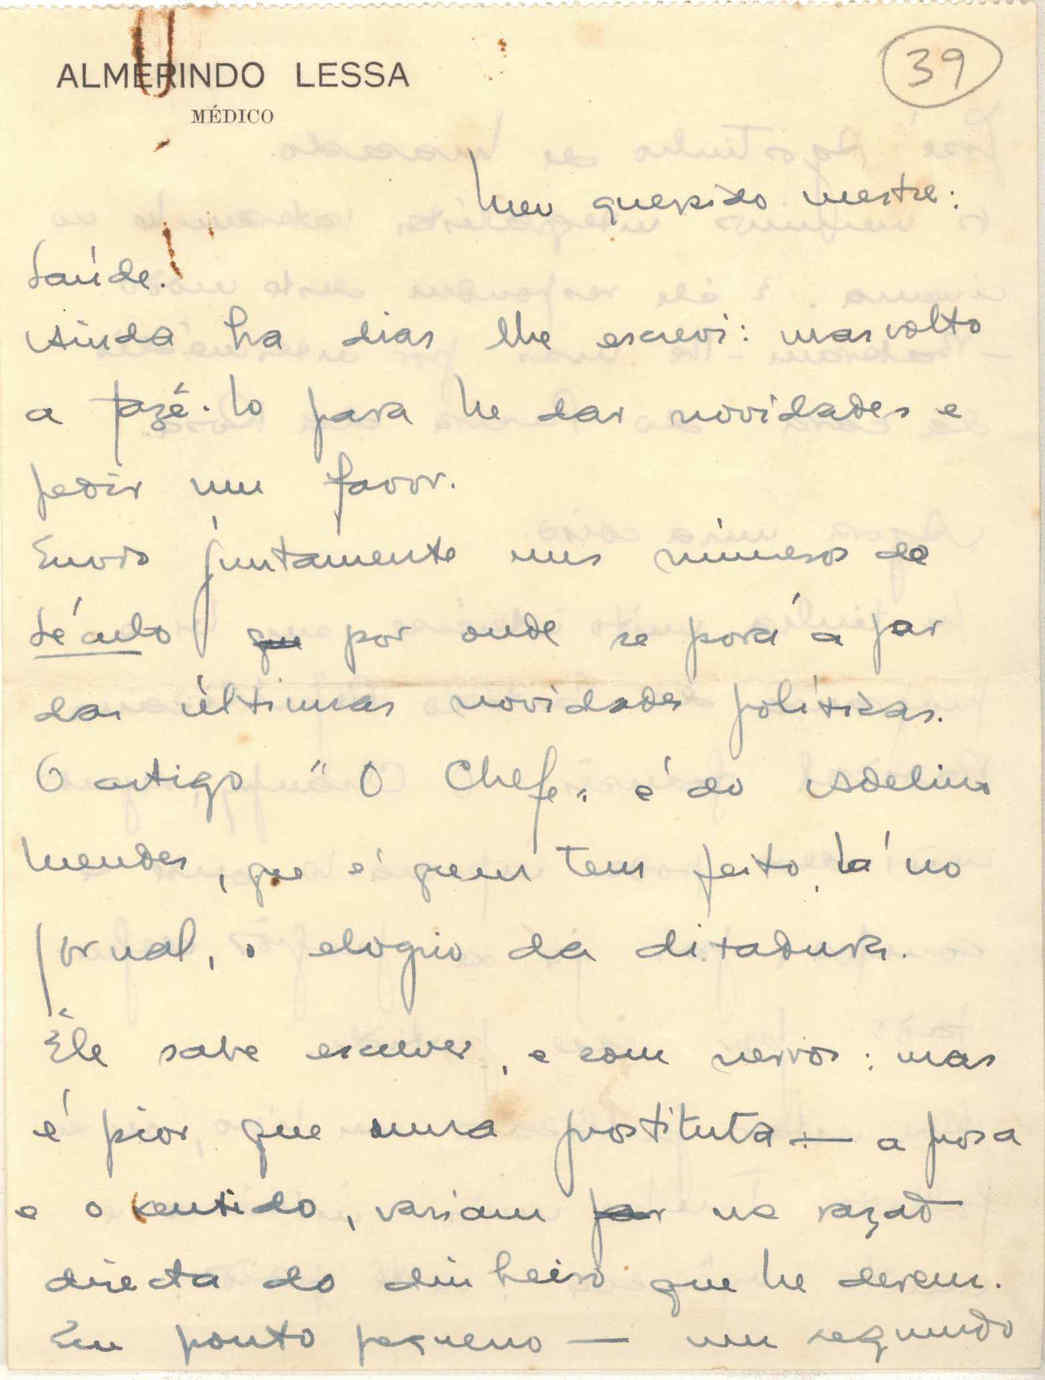 ALMERINDO LESSA
MÉDICO
39
Meu querido mestre:
Saúde.
Ainda ha dias lhe escrevi: mas volto
a fazê-lo para lhe dar novidades e
pedir um favor.
Envio juntamente uns números do
Século por onde se porá a par
das últimas novidades políticas.
O artigo "O Chefe" é do Adelino
Mendes, que é quem tem feito, lá no
jornal, o elogio da ditadura.
Êle sabe escrever, e com nervos: mas
é pior que uma prostituta — a prosa
e o sentido, variam na razão
directa do dinheiro que lhe derem.
Em ponto pequeno — um segundo